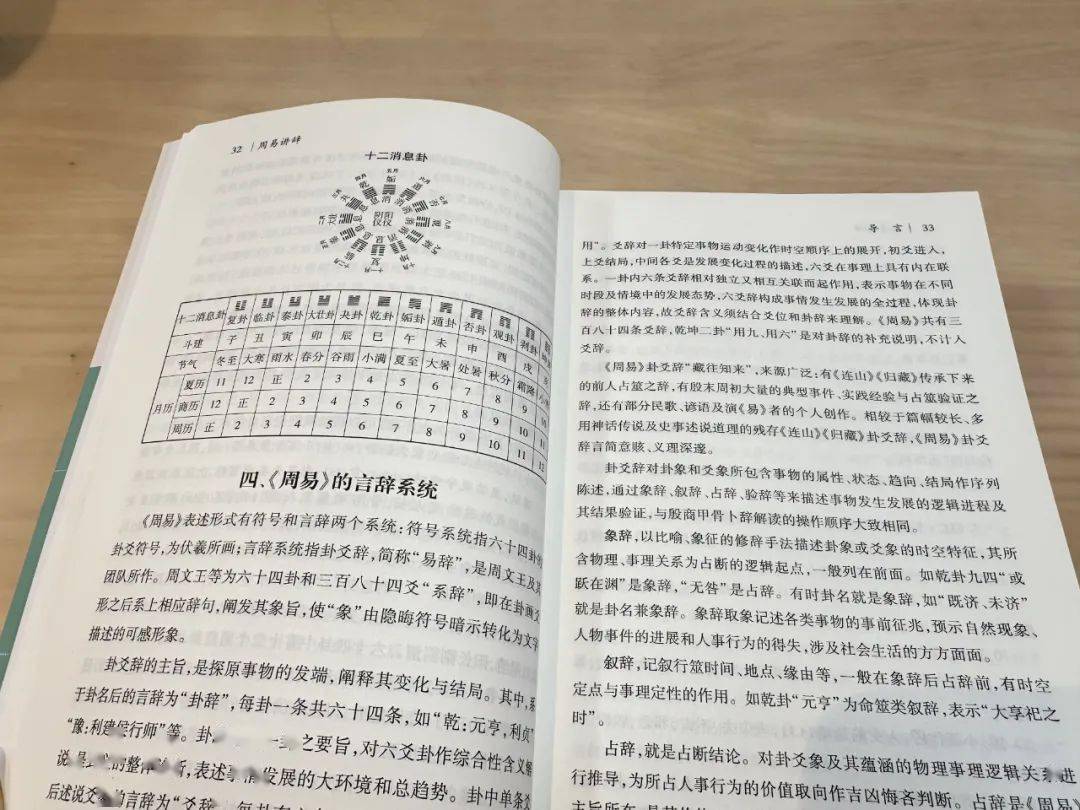 32 | 周易讲辞
十二消息卦
五月
六月
四月
八月
姤
乾
遁
否
观
消
息
阴阳
仪仪
复
十二消息卦 复卦 临卦 泰卦 大壮卦 夬卦 乾卦 姤卦 遁卦 否卦 观卦 剥卦
斗建 子 丑 寅 卯 辰 巳 午 未 申 酉 戌
节气 冬至 大寒 雨水 春分 谷雨 小满 夏至 大暑 处暑 秋分 霜降
月历 夏历 11 12 正 2 3 4 5 6 7 8 9 10
商历 12 正 2 3 4 5 6 7 8 9 10 11
周历 正 2 3 4 5 6 7 8 9 10 11 12
四、《周易》的言辞系统
《周易》表述形式有符号和言辞两个系统：符号系统指六十四卦
卦爻符号，为伏羲所画；言辞系统指卦爻辞，简称“易辞”，是周文王及其
团队所作。周文王等为六十四卦和三百八十四爻“系辞”，即在卦画爻
形之后系上相应辞句，阐发其象旨，使“象”由隐晦符号暗示转化为文字
描述的可感形象。
卦爻辞的主旨，是探原事物的发端，阐释其变化与结局。其中，系
于卦名后的言辞为“卦辞”，每卦一条共六十四条，如“乾：元亨，利贞”
“豫：利建侯行师”等。卦 之要旨，对六爻卦作综合性含义解
说 的整体 断，表述事 发展的大环境和总趋势。卦中单条爻
后述说爻 的言辞为“爻辞”
导 言 | 33
用”。爻辞对一卦特定事物运动变化作时空顺序上的展开，初爻进入，
上爻结局，中间各爻是发展变化过程的描述，六爻在事理上具有内在联
系。一卦内六条爻辞相对独立又相互关联而起作用，表示事物在不同
时段及情境中的发展态势，六爻辞构成事情发生发展的全过程，体现卦
辞的整体内容，故爻辞含义须结合爻位和卦辞来理解。《周易》共有三
百八十四条爻辞，乾坤二卦“用九、用六”是对卦辞的补充说明，不计入
爻辞。
《周易》卦爻辞“藏往知来”，来源广泛：有《连山》《归藏》传承下来
的前人占筮之辞，有殷末周初大量的典型事件、实践经验与占筮验证之
辞，还有部分民歌、谚语及演《易》者的个人创作。相较于篇幅较长、多
用神话传说及史事述说道理的残存《连山》《归藏》卦爻辞，《周易》卦爻
辞言简意赅、义理深邃。
卦爻辞对卦象和爻象所包含事物的属性、状态、趋向、结局作序列
陈述，通过象辞、叙辞、占辞、验辞等来描述事物发生发展的逻辑进程及
其结果验证，与殷商甲骨卜辞解读的操作顺序大致相同。
象辞，以比喻、象征的修辞手法描述卦象或爻象的时空特征，其所
含物理、事理关系为占断的逻辑起点，一般列在前面。如乾卦九四“或
跃在渊”是象辞，“无咎”是占辞。有时卦名就是象辞，如“既济、未济”
就是卦名兼象辞。象辞取象记述各类事物的事前征兆，预示自然现象、
人物事件的进展和人事行为的得失，涉及社会生活的方方面面。
叙辞，记叙行筮时间、地点、缘由等，一般在象辞后占辞前，有时空
定点与事理定性的作用。如乾卦“元亨”为命筮类叙辞，表示“大享祀之
时”。
占辞，就是占断结论。对卦爻象及其蕴涵的物理事理逻辑关系进
行推导，为所占人事行为的价值取向作吉凶悔吝判断。占辞是《周易》